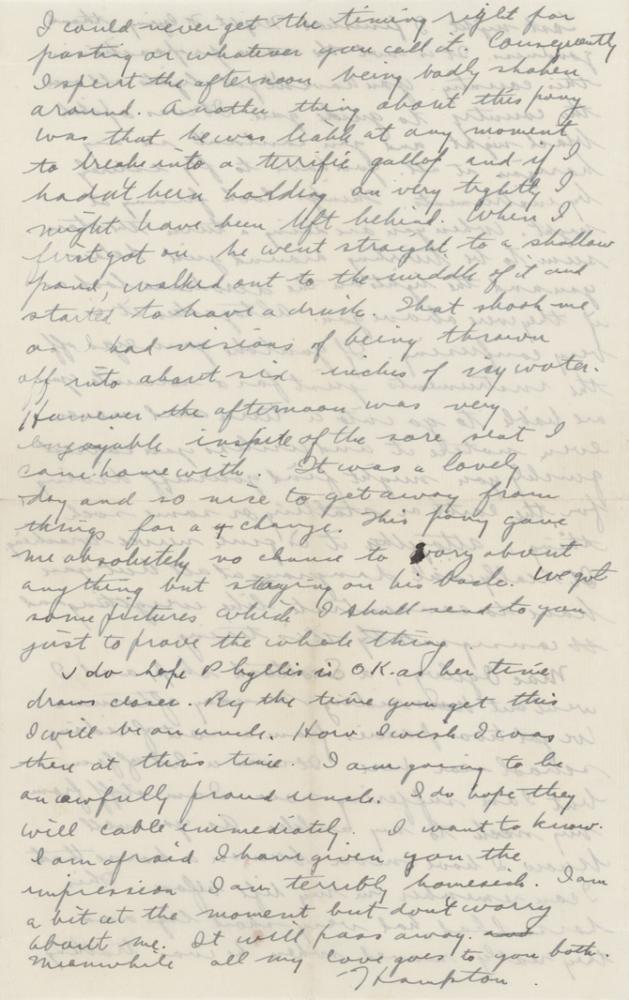 I could never get the timing right for
posting or whatever you call it. Consequently
I spent the afternoon being badly shaken
around. Another thing about this pony
was that he was liable at any moment
to breake into a terrific gallop and if I
hadn't been holding on very tightly I
might have been left behind. When I
first got on he went straight to a shallow
pond, walked out to the middle of it and
started to have a drink. That shook me
as I had visions of being thrown
off into about six inches of icy water.
However the afternoon was very
enjoyable inspite of the sore seat I
came home with. It was a lovely
day and so nice to get away from
things for a change. This pony gave
me absolutely no chance to worry about
anything but staying on his back. We got
some pictures which I shall send to you
just to prove the whole thing.
I do hope Phyllis is O.K. as her time
draws closer. By the time you get this
I will be an uncle. How I wish I was
there at this time. I am going to be
an awfully proud uncle. I do hope they
will cable immediately. I want to know.
I am afraid I have given you the
impression I am terribly homesick. I am
a bit at the moment but don't worry
about me. It will pass away. and
Meanwhile all my love goes to you both.
Hampton.